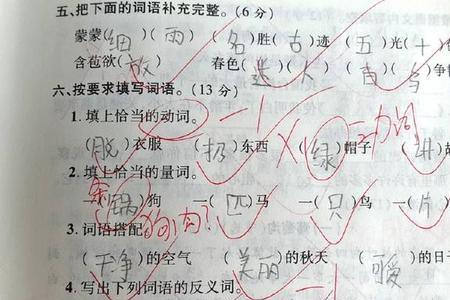 五、把下面的词语补充完整。(6分)
蒙蒙(细)(雨) (名)胜(古)迹 (五)光(十
含苞欲(放) 春色(迷)(人) (百)(鸟)争
六、按要求填写词语。(13分) -1
1.填上恰当的动词。
(脱)衣服 (扔)东西 (绿)帽子 动词
2.填上恰当的量词。
一(锅)狗 一(匹)马 一(只)鸟 一(片)
条 狗肉?
3.词语搭配
(干净)的空气 (美丽)的秋天 (可爱)的日
4.写出下列词语的反义词。